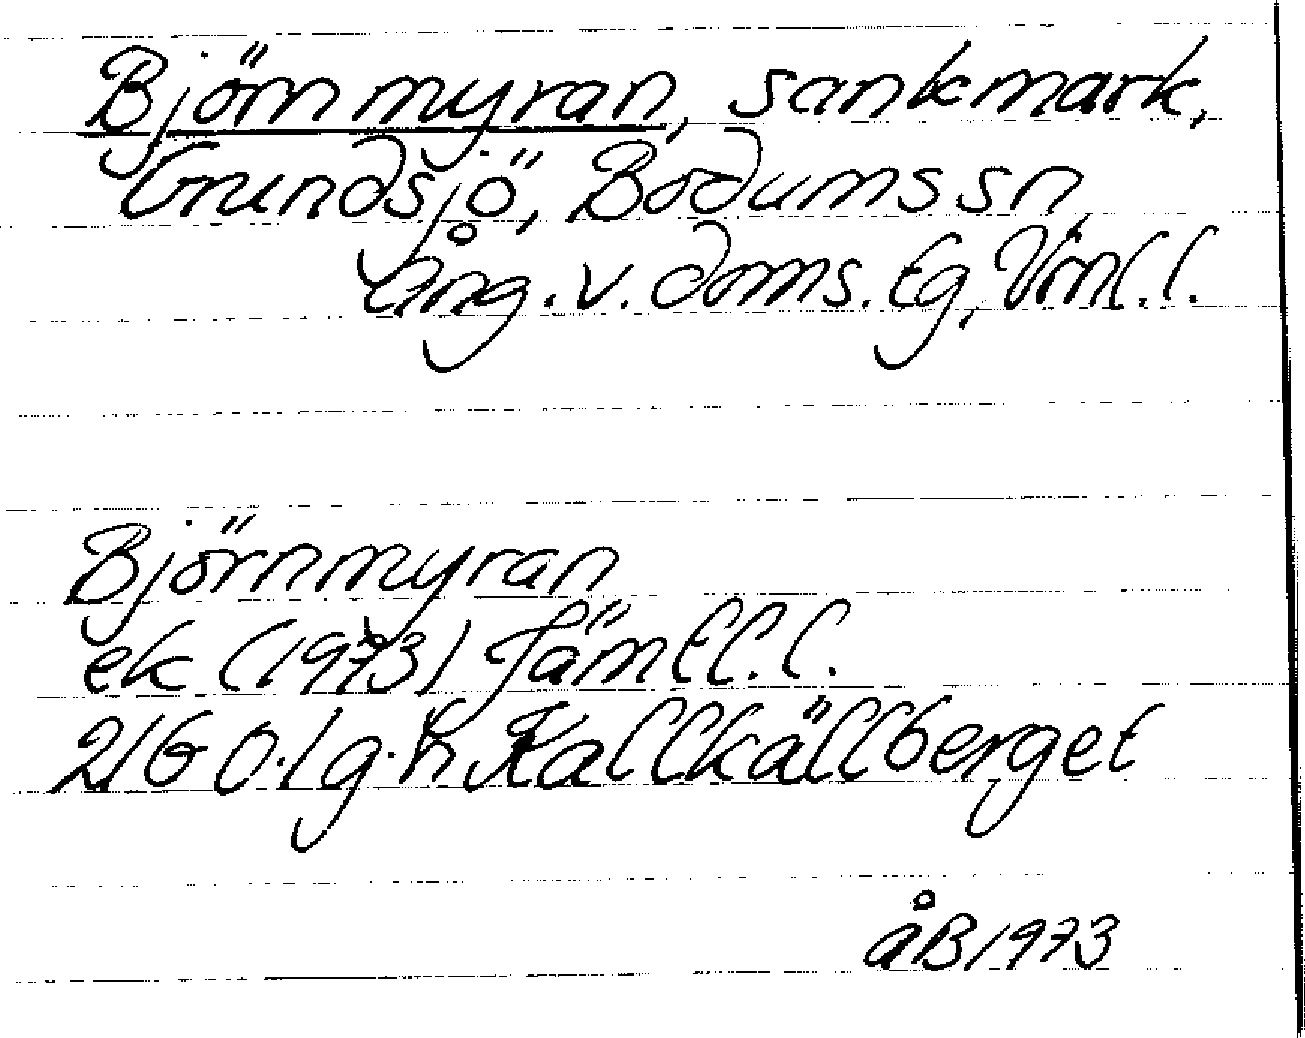 Björnmyran, sankmark,
Grundsjö, Bodums sn,
Ång. v. doms. tg, Vrnl. l.
Björnmyran
ek (1973) Jämtl. l.
21G 0.1g.h Kallkällberget
åB 1973